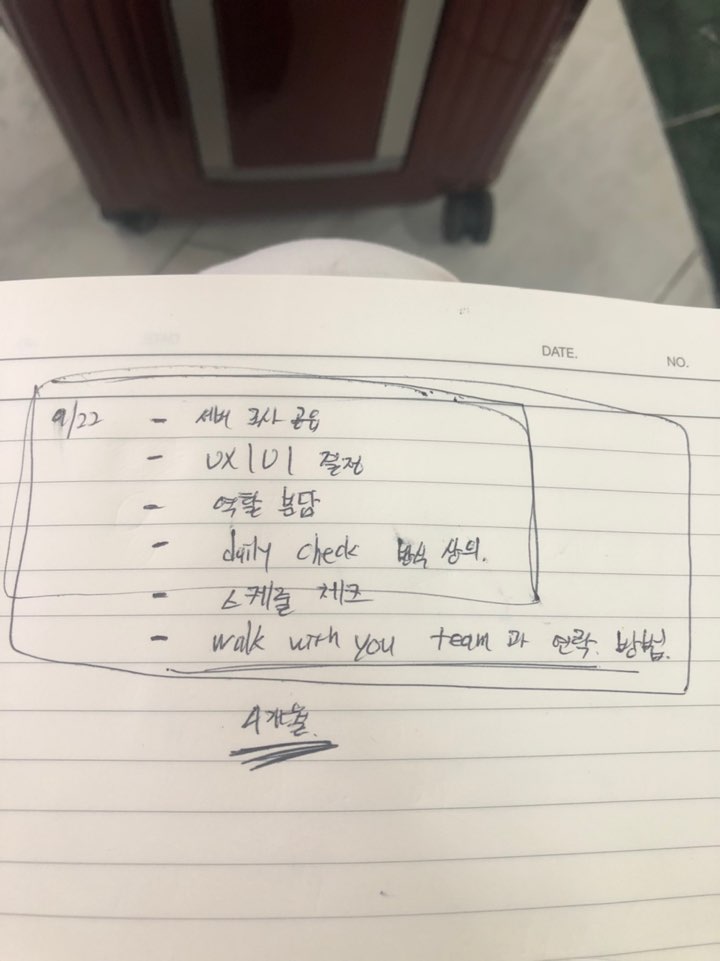 DATE.
NO.
9/22 - 세버 조사 공유
- UX|UI 결정
- 역할 분담
- daily check 방식 상의.
- 스케줄 체크
- walk with you team 과 연락. 방법.
4개월.